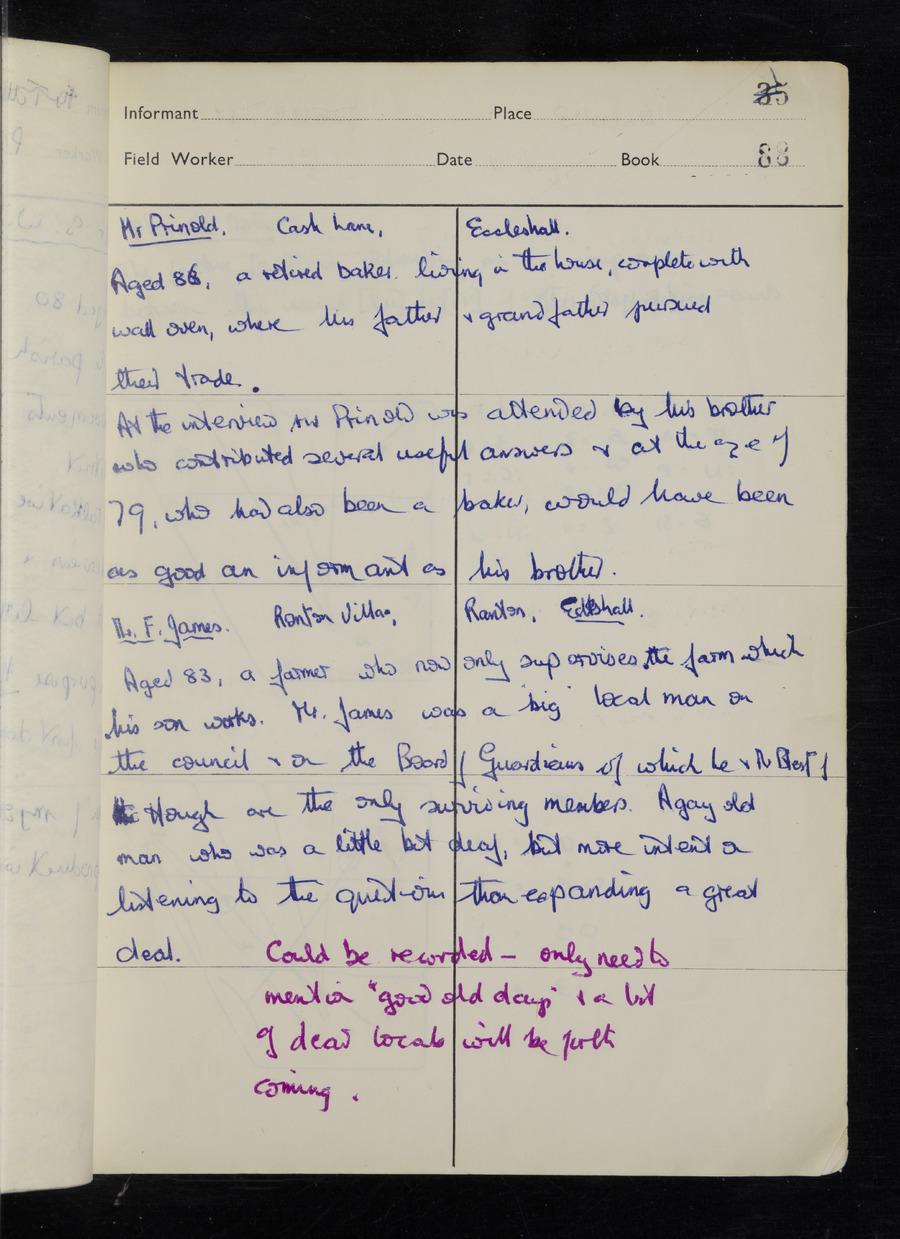 35
Informant Place
Field Worker Date Book 88
Mr Prinold. Cash Lane, Eccleshall.
Aged 86, a retired baker living in the house, complete with
wall oven, where his father & grandfather pursued
their trade.
At the interview Mr Prinold was attended by his brother
who contributed several useful answers & at the age of
79, who had also been a baker, would have been
as good an informant as his brother.
Mr. F. James. Ranton Villa, Ranton, Eccleshall.
Aged 83, a farmer who now only supervises the farm which
his son works. Mr. James was a 'big' local man on
the council & on the Board of Guardians of which he & Mr of
Hough are the only surviving members. A gay old
man who was a little bit deaf, but more intent on
listening to the questions than expanding a great
deal. Could be recorded – only need to
mention "good old days" & a bit
of dead locals will be forth
coming.